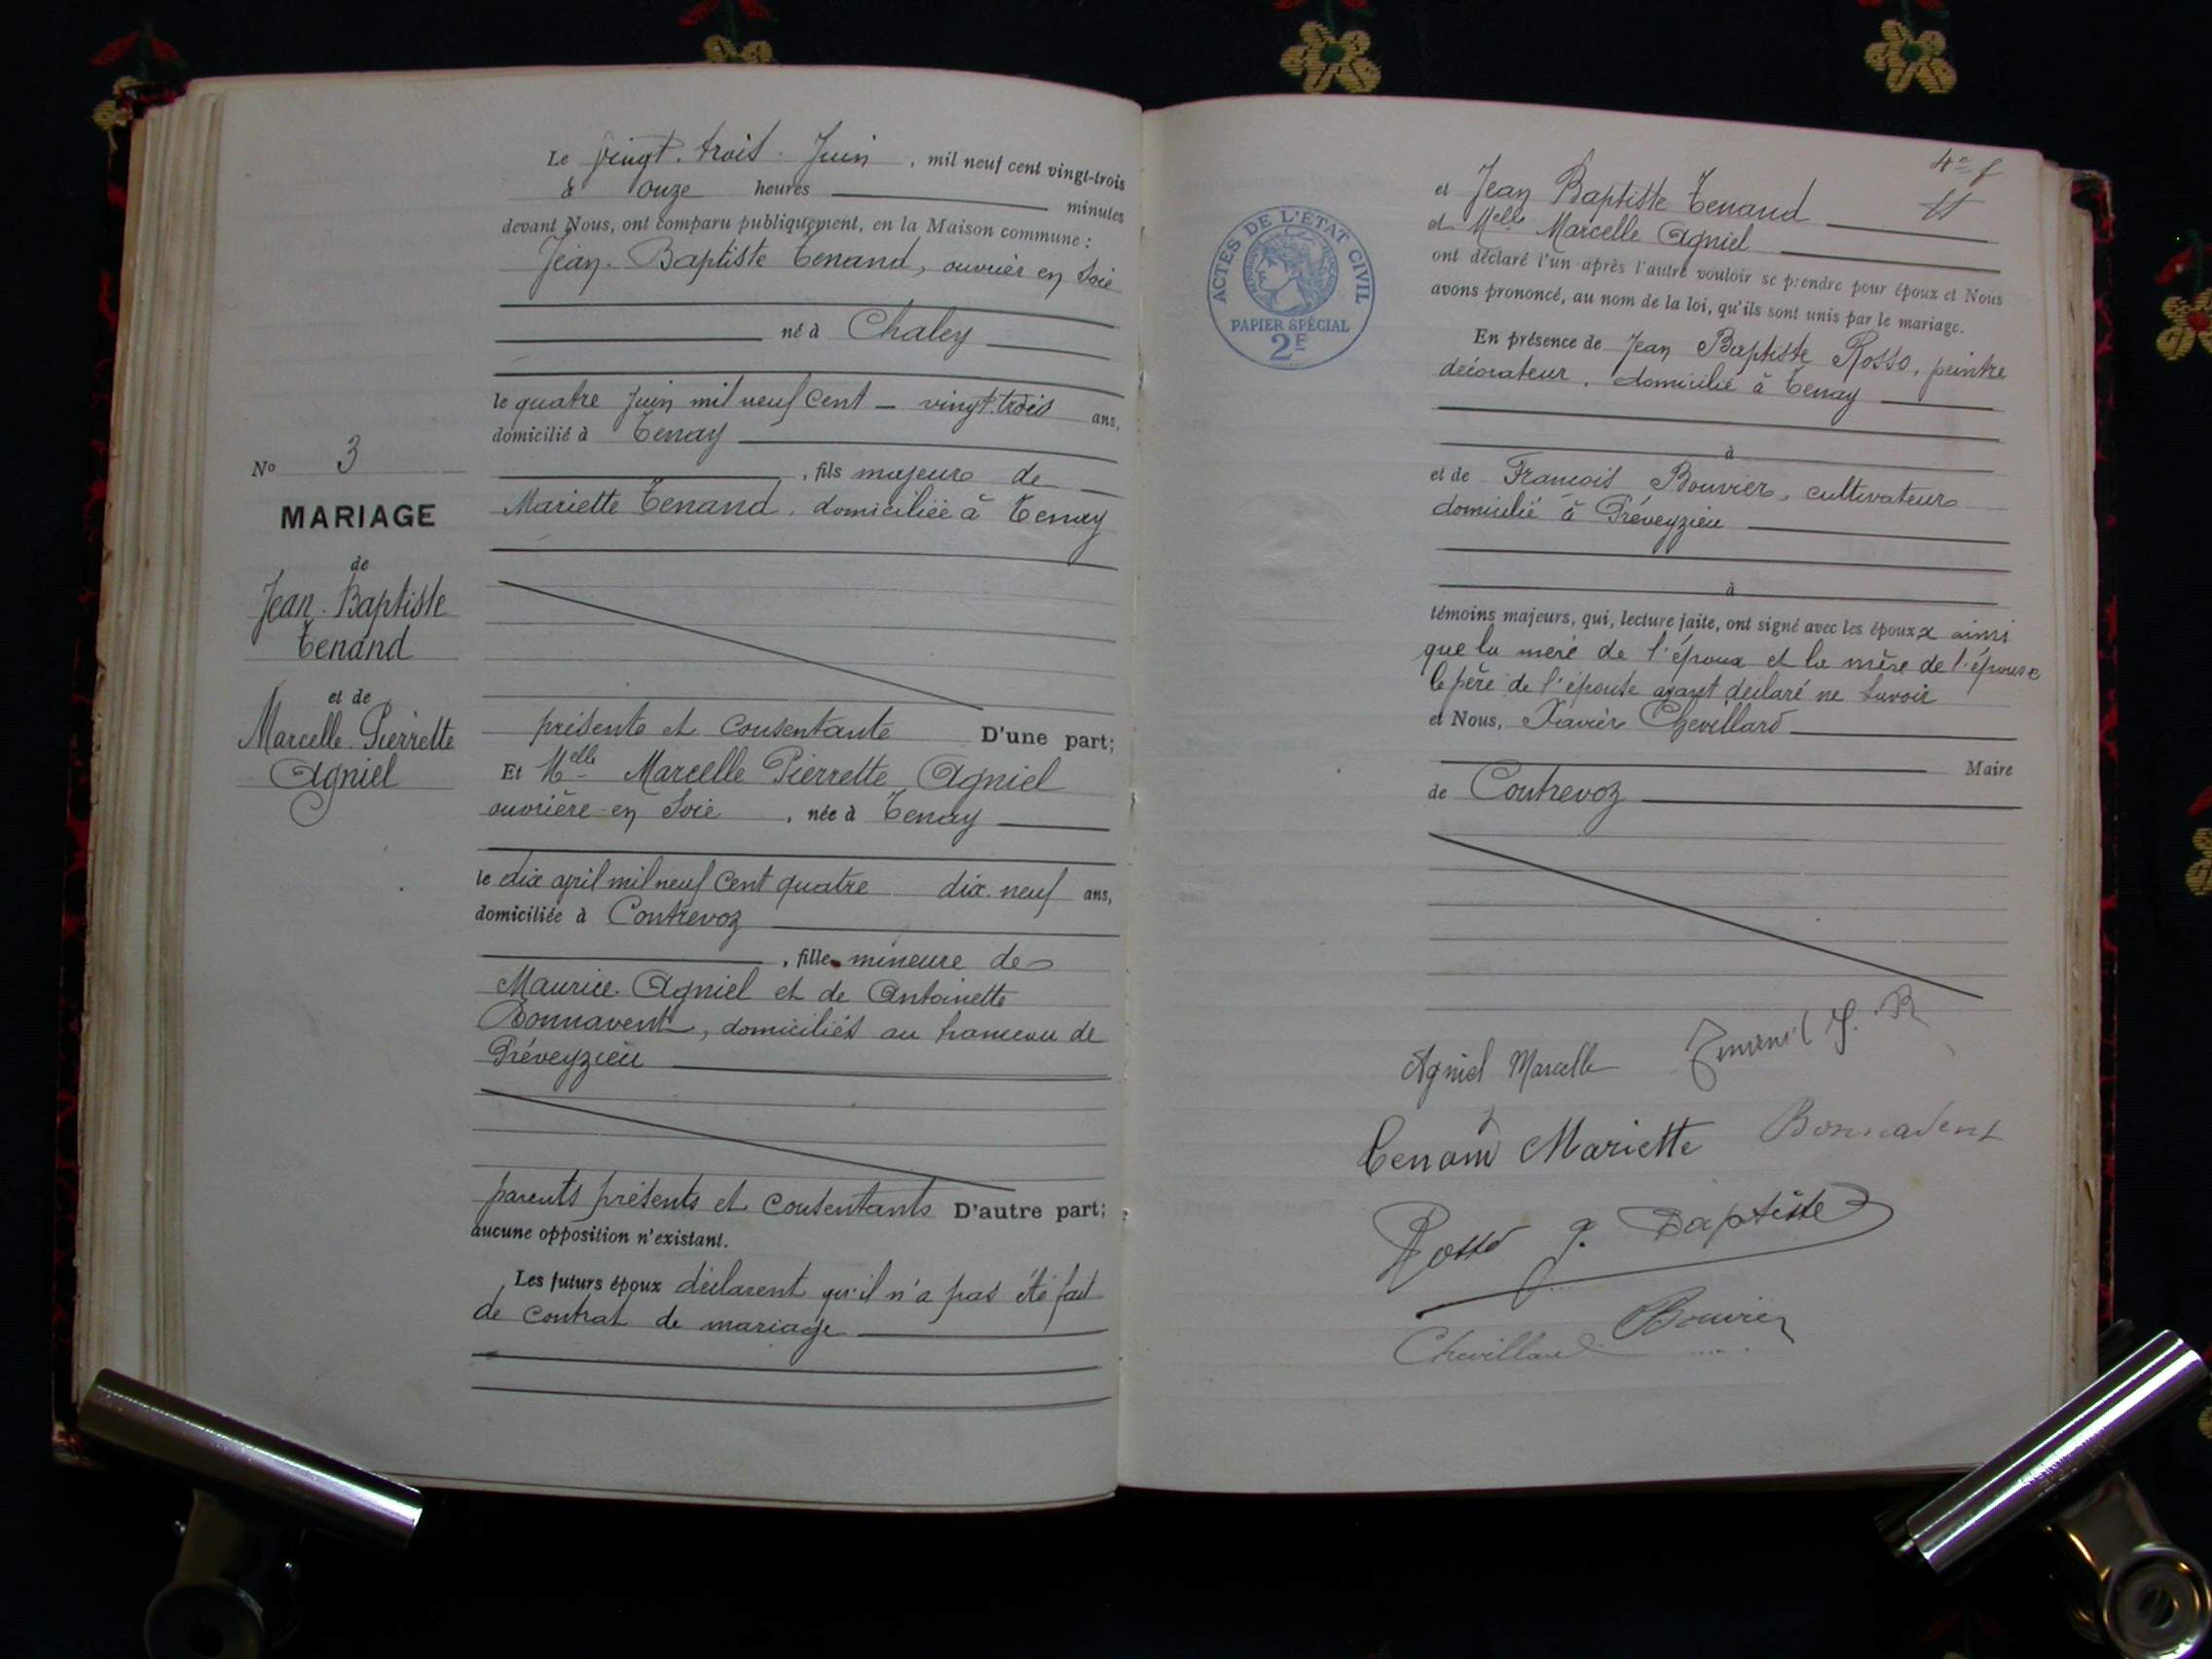 Le vingt. trois. Juin, mil neuf cent vingt-trois
à onze heures minutes
devant Nous, ont comparu publiquement, en la Maison commune :
Jean-Baptiste Tenand, ouvrier en Soie
né à Chaley
le quatre Juin mil neuf Cent – vingt.trois ans,
domicilié à Tenay
, fils majeur de
Mariette Tenand, domiciliée à Tenay
présente et Consentante D'une part;
Et Melle Marcelle Pierrette Agniel
ouvrière en Soie, née à Tenay
le dix avril mil neuf Cent quatre dix.neuf ans,
domiciliée à Contrevoz
, fille mineure de
Maurice Agniel et de Antoinette
Bonnavent, domiciliés au hameau de
Préveyzieu
parents présents et Consentants D'autre part;
aucune opposition n'existant.
Les futurs époux déclarent qu'il n'a pas été fait
de Contrat de mariage
No 3
MARIAGE
de
Jean-Baptiste
Tenand
et de
Marcelle Pierrette
Agniel
ACTES DE L'ÉTAT CIVIL
PAPIER SPÉCIAL
2F
et Jean Baptiste Tenand
et Melle Marcelle Agniel
ont déclaré l'un après l'autre vouloir se prendre pour époux et Nous
avons prononcé, au nom de la loi, qu'ils sont unis par le mariage.
En présence de Jean Baptiste Rosso, peintre
décorateur, domicilié à Tenay
à
et de François Bouvier, cultivateur
domicilié à Préveyzieu
à
témoins majeurs, qui, lecture faite, ont signé avec les époux ainsi
que la mère de l'époux et la mère de l'épouse
le père de l'épouse ayant déclaré ne savoir
et Nous, Xavier Chevillard
Maire
de Contrevoz
Agniel Marcelle
J. B
Tenand Mariette Bonnavent
Rosso J. Baptiste
Bouvier
Chevillard